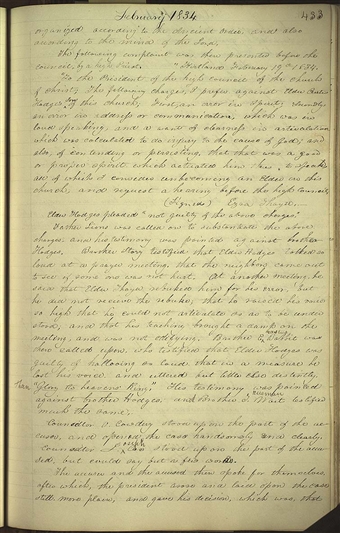 February 1834
433
organized according to the ancient order, and also
according to the mind of the Lord.
The following complaint was then presented before the
council, by a high Priest. "Kirtland February 19th 1834.
To the President of the high council of the church
of christ, The following charges I prefer against Elder Curtis
Hodges Sen of this church, First, an error in Spirit, Secondly,
an error in address or communication, which was in
loud speaking, and a want of clearness in articulation
which was calculated to do injury to the cause of God; and
also, of contending or persisting, that that was a good
or proper spirit which actuated him thus to speak
all of which I consider unbecoming an Elder in this
church, and request a hearing before the high Council
(Signed) Ezra Thayer.
Elder Hodges pleaded "not guilty of the above charges."
Father Lions was called on to substantiate the above
charges and his testimony was pointed against brother
Hodges. Brother Story testified that Elder Hodges talked so
loud at a prayer meeting that the neighbors came out
to see if some one was not hurt. At another meeting, he
said that Elder Thayer rebuked him for his error, but
he did not receive the rebuke, that he raised his voice
so high that he could not articulate so as to be under-
stood, and that his teaching brought a damp on the
meeting, and was not edifying. Brother
then called upon, who testified that Elder Hodges was
guilty of hallooing so loud that in a measure he
lost his voice and uttered but little else distinctly
than "Glory to heavens King." His testimony was pointed
against brother Hodges and Brother T. Wait testified
much the same.
Councellor O. Cowdery stood up on the part of the ac-
cuser, and opened the case handsomely and clearly.
Councellor Joseph Coe stood up on the part of the accu-
sed, but could say but a few words.
The accuser and the accused then spoke for themselves,
after which, the president arose and laid open the case
still more plain, and gave his decision, which was, that